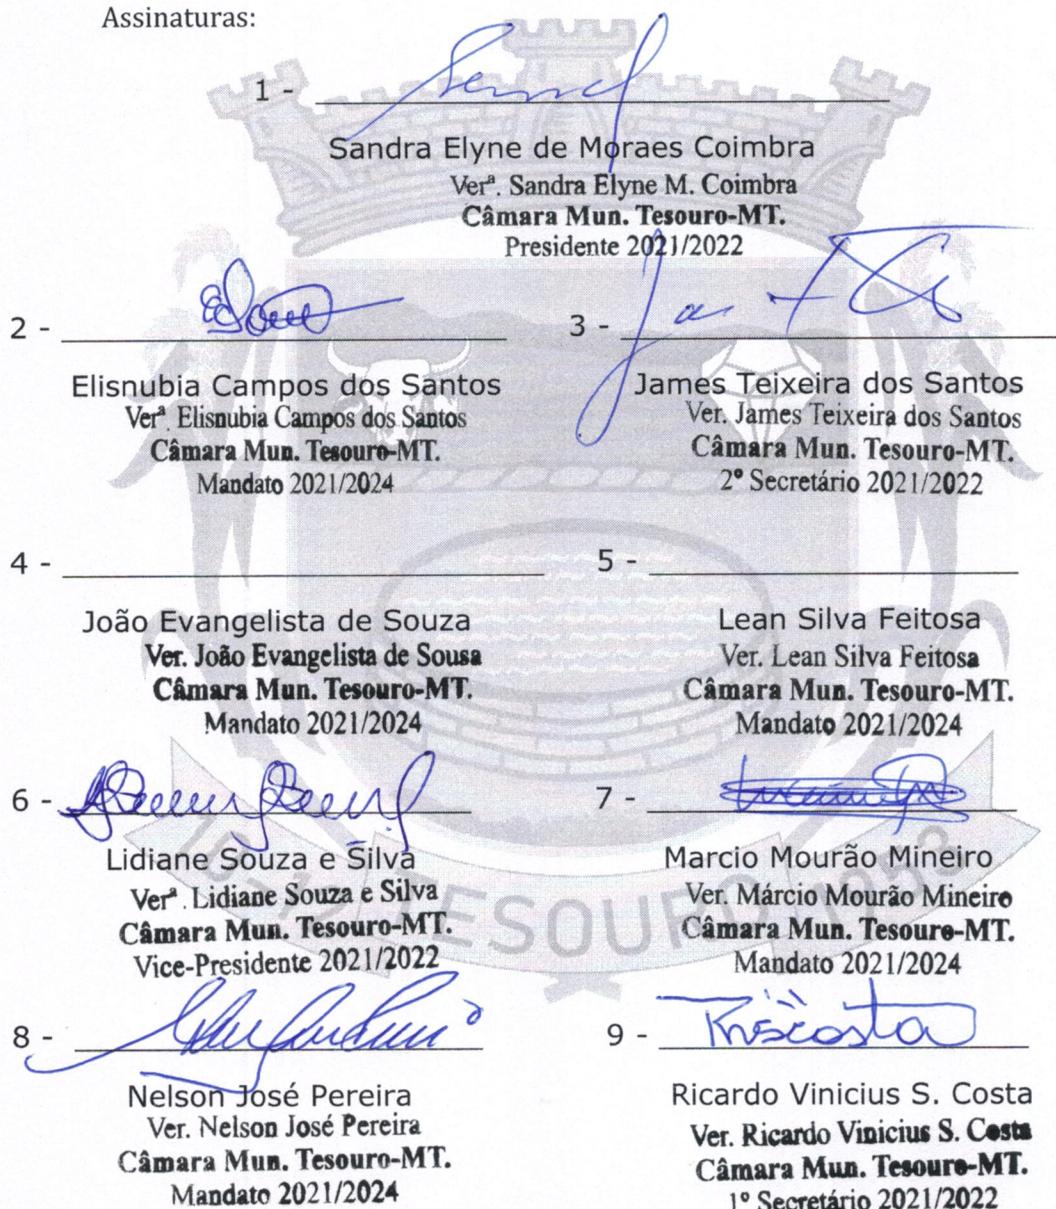 Assinaturas:
1 -
Sandra Elyne de Moraes Coimbra
Verª. Sandra Elyne M. Coimbra
Câmara Mun. Tesouro-MT.
Presidente 2021/2022
2 -
Elisnubia Campos dos Santos
Verª. Elisnubia Campos dos Santos
Câmara Mun. Tesouro-MT.
Mandato 2021/2024
3 -
James Teixeira dos Santos
Ver. James Teixeira dos Santos
Câmara Mun. Tesouro-MT.
2º Secretário 2021/2022
4 -
João Evangelista de Souza
Ver. João Evangelista de Sousa
Câmara Mun. Tesouro-MT.
Mandato 2021/2024
5 -
Lean Silva Feitosa
Ver. Lean Silva Feitosa
Câmara Mun. Tesouro-MT.
Mandato 2021/2024
6 -
Lidiane Souza e Silva
Verª. Lidiane Souza e Silva
Câmara Mun. Tesouro-MT.
Vice-Presidente 2021/2022
7 -
Marcio Mourão Mineiro
Ver. Márcio Mourão Mineiro
Câmara Mun. Tesouro-MT.
Mandato 2021/2024
TESOURO
8 -
Nelson José Pereira
Ver. Nelson José Pereira
Câmara Mun. Tesouro-MT.
Mandato 2021/2024
9 -
Ricardo Vinicius S. Costa
Ver. Ricardo Vinicius S. Costa
Câmara Mun. Tesouro-MT.
1º Secretário 2021/2022